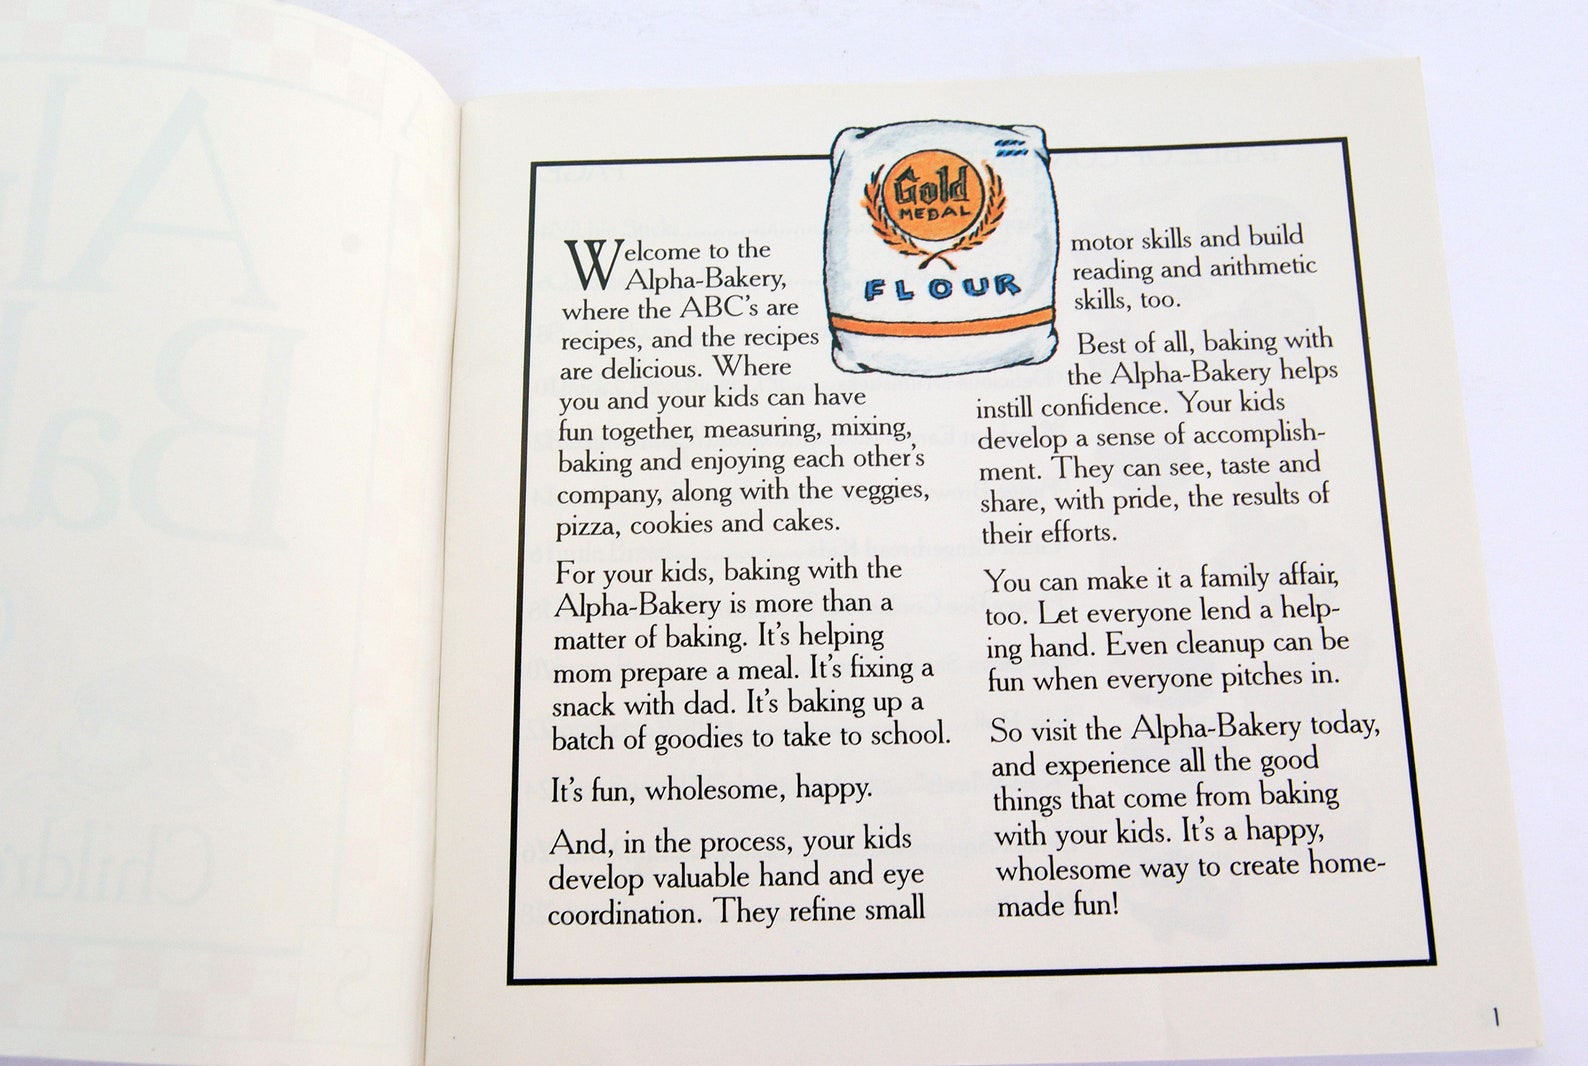 Gold
MEDAL
FLOUR
Welcome to the
Alpha-Bakery,
where the ABC's are
recipes, and the recipes
are delicious. Where
you and your kids can have
fun together, measuring, mixing,
baking and enjoying each other's
company, along with the veggies,
pizza, cookies and cakes.
For your kids, baking with the
Alpha-Bakery is more than a
matter of baking. It's helping
mom prepare a meal. It's fixing a
snack with dad. It's baking up a
batch of goodies to take to school.
It's fun, wholesome, happy.
And, in the process, your kids
develop valuable hand and eye
coordination. They refine small
motor skills and build
reading and arithmetic
skills, too.
Best of all, baking with
the Alpha-Bakery helps
instill confidence. Your kids
develop a sense of accomplish-
ment. They can see, taste and
share, with pride, the results of
their efforts.
You can make it a family affair,
too. Let everyone lend a help-
ing hand. Even cleanup can be
fun when everyone pitches in.
So visit the Alpha-Bakery today,
and experience all the good
things that come from baking
with your kids. It's a happy,
wholesome way to create home-
made fun!
1